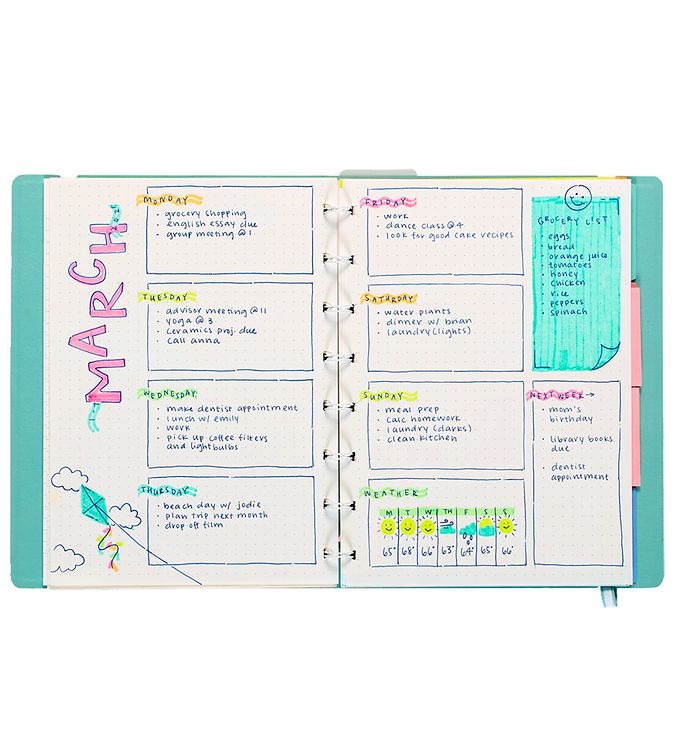 MARCH
MONDAY
• grocery shopping
• English essay due
• group meeting @1
TUESDAY
• advisor meeting @11
• yoga @ 3
• Ceramics proj. due
• call anna
WEDNESDAY
• make dentist appointment
• lunch w/ emily
• work
• pick up coffee filters
and lightbulbs
THURSDAY
• beach day w/ jodie
• plan trip next month
• drop off film
FRIDAY
• work
• dance class @ 4
• look for good cake recipes
SATURDAY
• water plants
• dinner w/ brian
• laundry (lights)
SUNDAY
• meal prep
• calc homework
• laundry (darks)
• clean kitchen
WEATHER
M T W TH F S S
65° 68° 66° 63° 64° 65° 66°
GROCERY LIST
• eggs
• bread
• orange juice
• tomatoes
• honey
• chicken
• rice
• peppers
• spinach
NEXT WEEK →
• mom's
birthday
• library books
due
• dentist
appointment